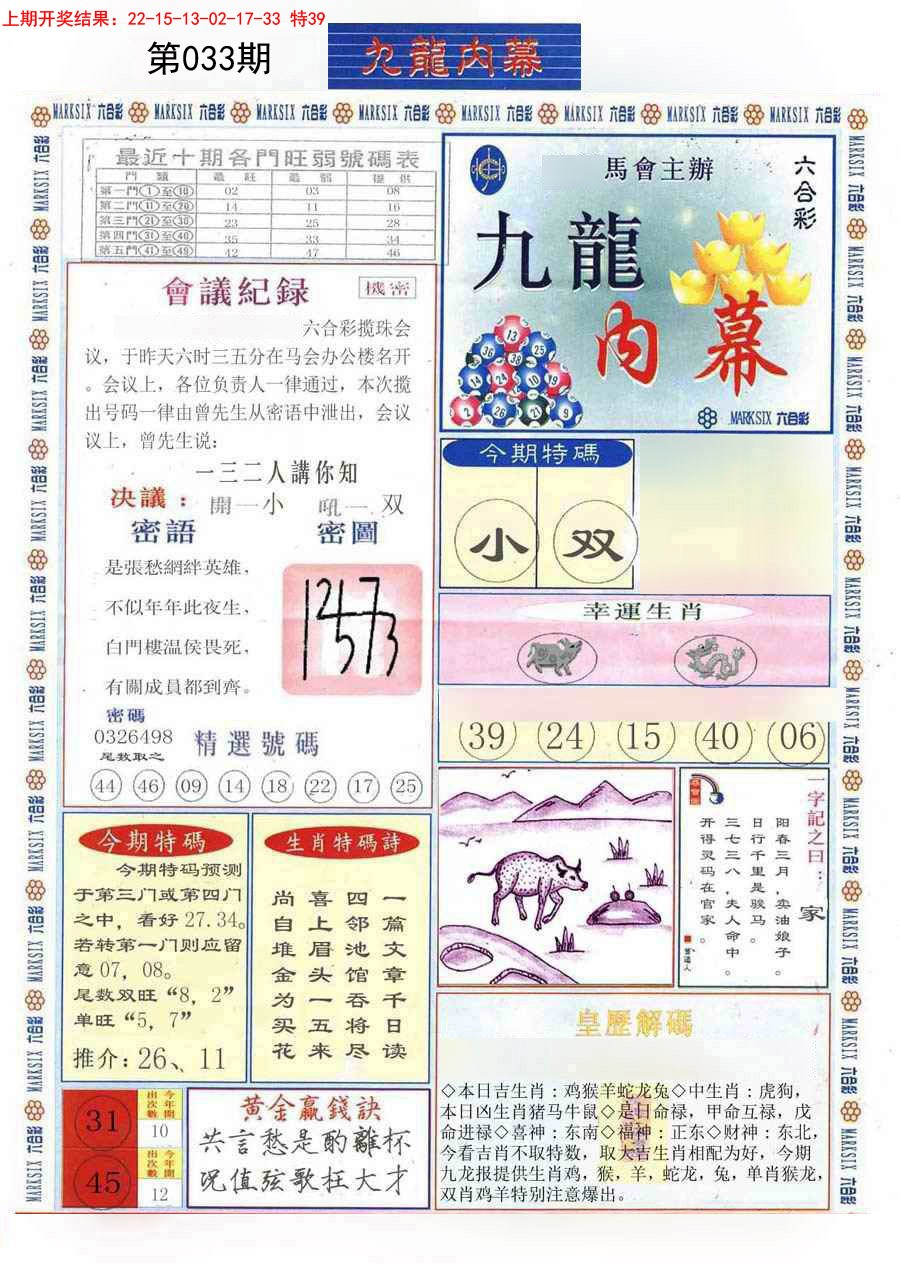 上期开奖结果：22-15-13-02-17-33 特39
第033期
九龍内幕
MARKSIX 六合彩 MARKSIX 六合彩 MARKSIX 六合彩 MARKSIX 六合彩 MARKSIX 六合彩 MARKSIX 六合彩 MARKSIX 六合彩 MARKSIX 六合彩
最近十期各門旺弱號碼表
門 類 最 旺 最 弱 提 供
第一門①至⑩ 02 03 08
第二門⑪至⑳ 14 11 16
第三門㉑至㉚ 23 25 28
第四門㉛至㊵ 35 33 34
第五門㊶至㊾ 42 47 46
會議紀录
機密
六合彩揽珠会
议，于昨天六时三五分在马会办公楼名开
。会议上，各位负责人一律通过，本次揽
出号码一律由曾先生从密语中泄出，会议
议上，曾先生说：
一三二人講你知
决議：開一小 吼一双
密語
密圖
是張愁網絆英雄，
不似年年此夜生，
白門樓温侯畏死，
有關成員都到齊。
密碼
0326498
尾数取之
精選號碼
44 46 09 14 18 22 17 25
馬會主辦
六合彩
九龍
内幕
13
36 38 25
14 24 10 19
2 26 27 9
MARKSIX 六合彩
今期特碼
小 双
幸運生肖
39 24 15 40 06
一字記之曰：家
阳春三月，卖油娘子。
日行千里是骏马。
三七三八，夫人命中。
开得灵码在官家。
曾道人
今期特碼
今期特码预测
于第三门或第四门
之中，看好27.34。
若转第一门则应留
意07，08。
尾数双旺“8，2”
单旺“5，7”
推介：26、11
生肖特碼詩
一篇文章千日读
四邻池馆吞将尽
喜上眉头一五来
尚自堆金为买花
31
今年開出次數
10
45
今年開出次數
12
黄金赢錢訣
共言愁是酌離杯
况值弦歌枉大才
皇歷解碼
◇本日吉生肖：鸡猴羊蛇龙兔◇中生肖：虎狗，
本日凶生肖猪马牛鼠◇是日命禄，甲命互禄，戊
命进禄◇喜神：东南◇福神：正东◇财神：东北，
今看吉肖不取特数，取大吉生肖相配为好，今期
九龙报提供生肖鸡，猴，羊，蛇龙，兔，单肖猴龙，
双肖鸡羊特别注意爆出。